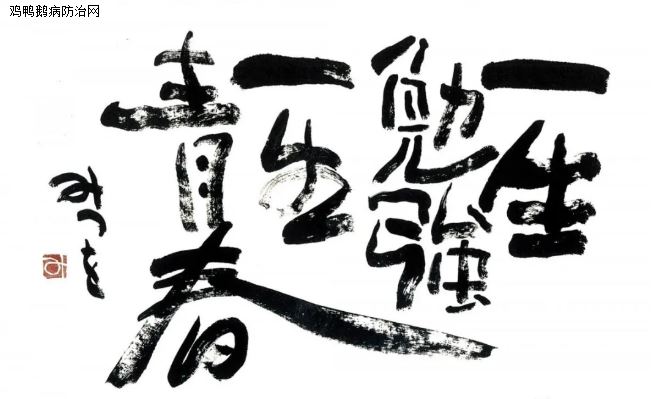 鸡鸭鹅病防治网
一生
勉強
一生
青春
みつを